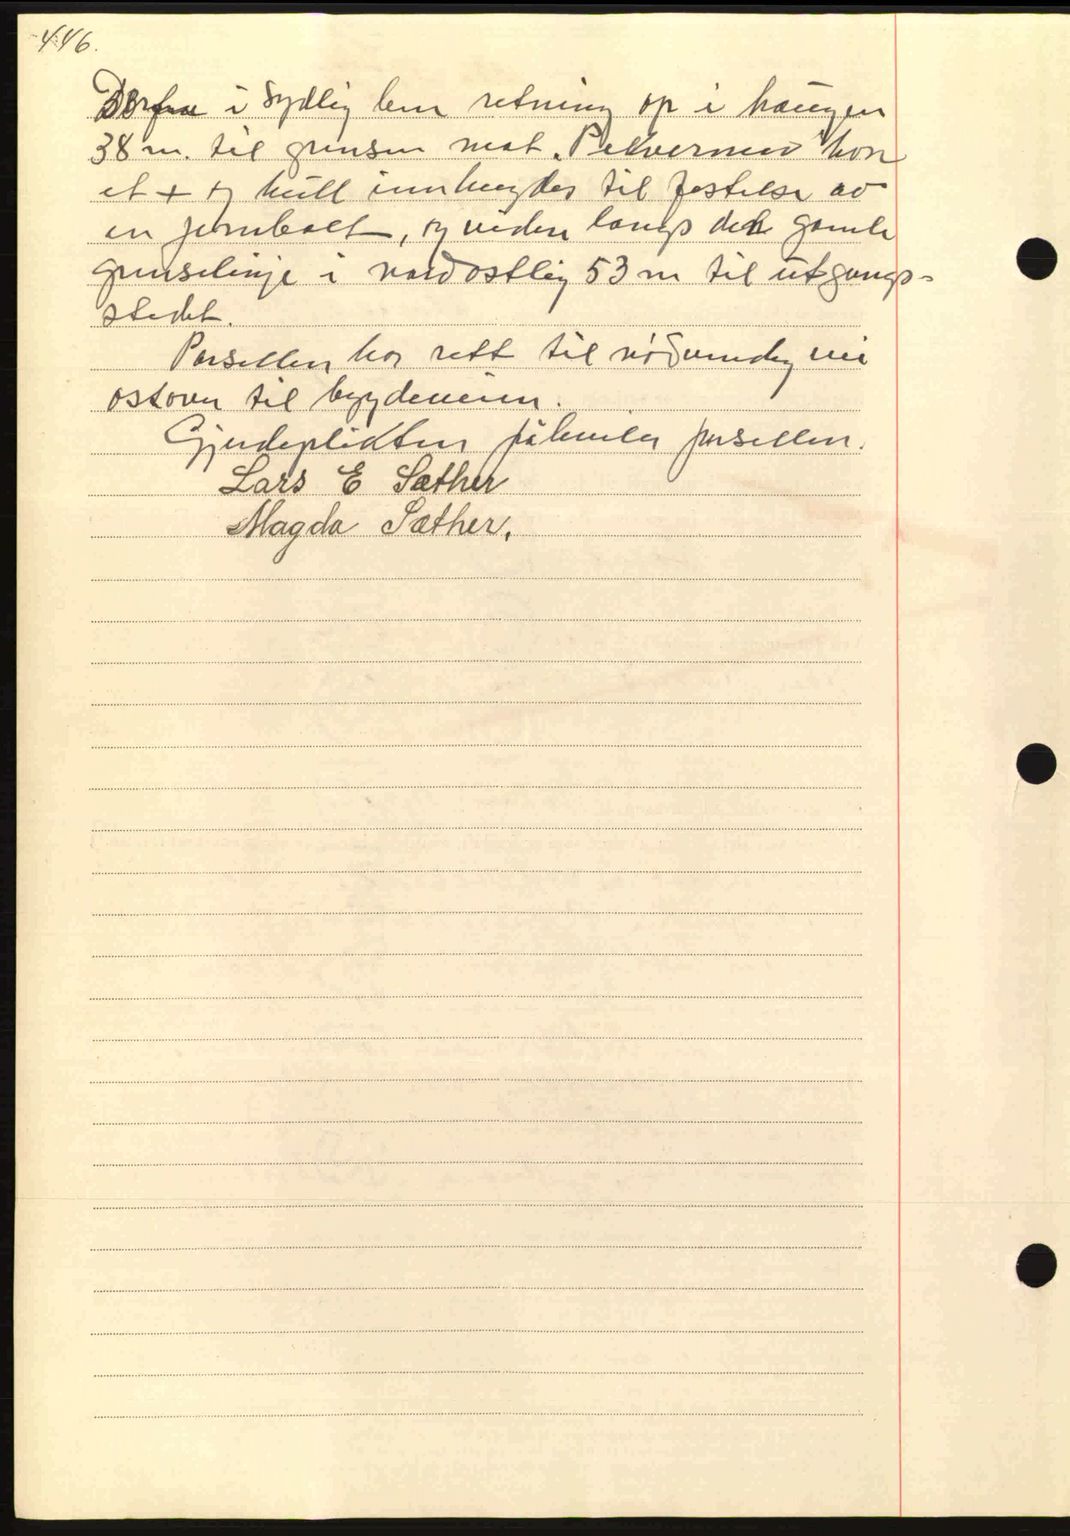 446.
Derfra i sydlig lem retning op i haugen
38 m. til grensen mot "Pelvernes" hvor
et + og hull innhugdes til festelse av
en jernbolt, og videre langs den gamle
grenselinje i nordostlig 53 m til utgangs-
stedet.
Parsellen har rett til nødvendig vei
ostover til bygdeveien.
Gjerdeplikten påhviler parsellen.
Lars E Sæther
Magda Sæther.